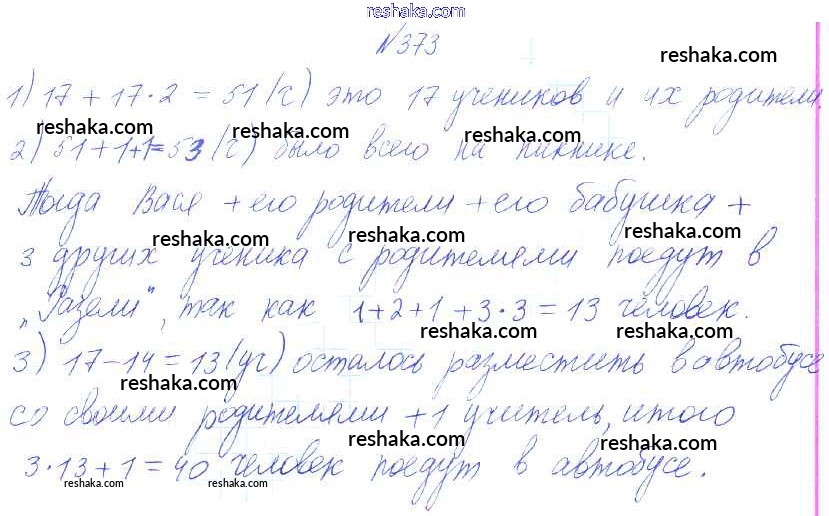 reshaka.com
№373
reshaka.com
1) 17 + 17·2 = 51 (ч) это 17 учеников и их родители.
reshaka.com reshaka.com
2) 51+1+1=53 (ч) было всего на пикнике.
Тогда Вася + его родители + его бабушка +
reshaka.com reshaka.com reshaka.com
3 других ученика с родителями поедут в
„Газели", так как 1+2+1+3·3=13 человек.
reshaka.com reshaka.com
3) 17-14=13 (уч) осталось разместить в автобусе
со своими родителями +1 учитель, итого
reshaka.com reshaka.com
3·13+1=40 человек поедут в автобусе.
reshaka.com reshaka.com